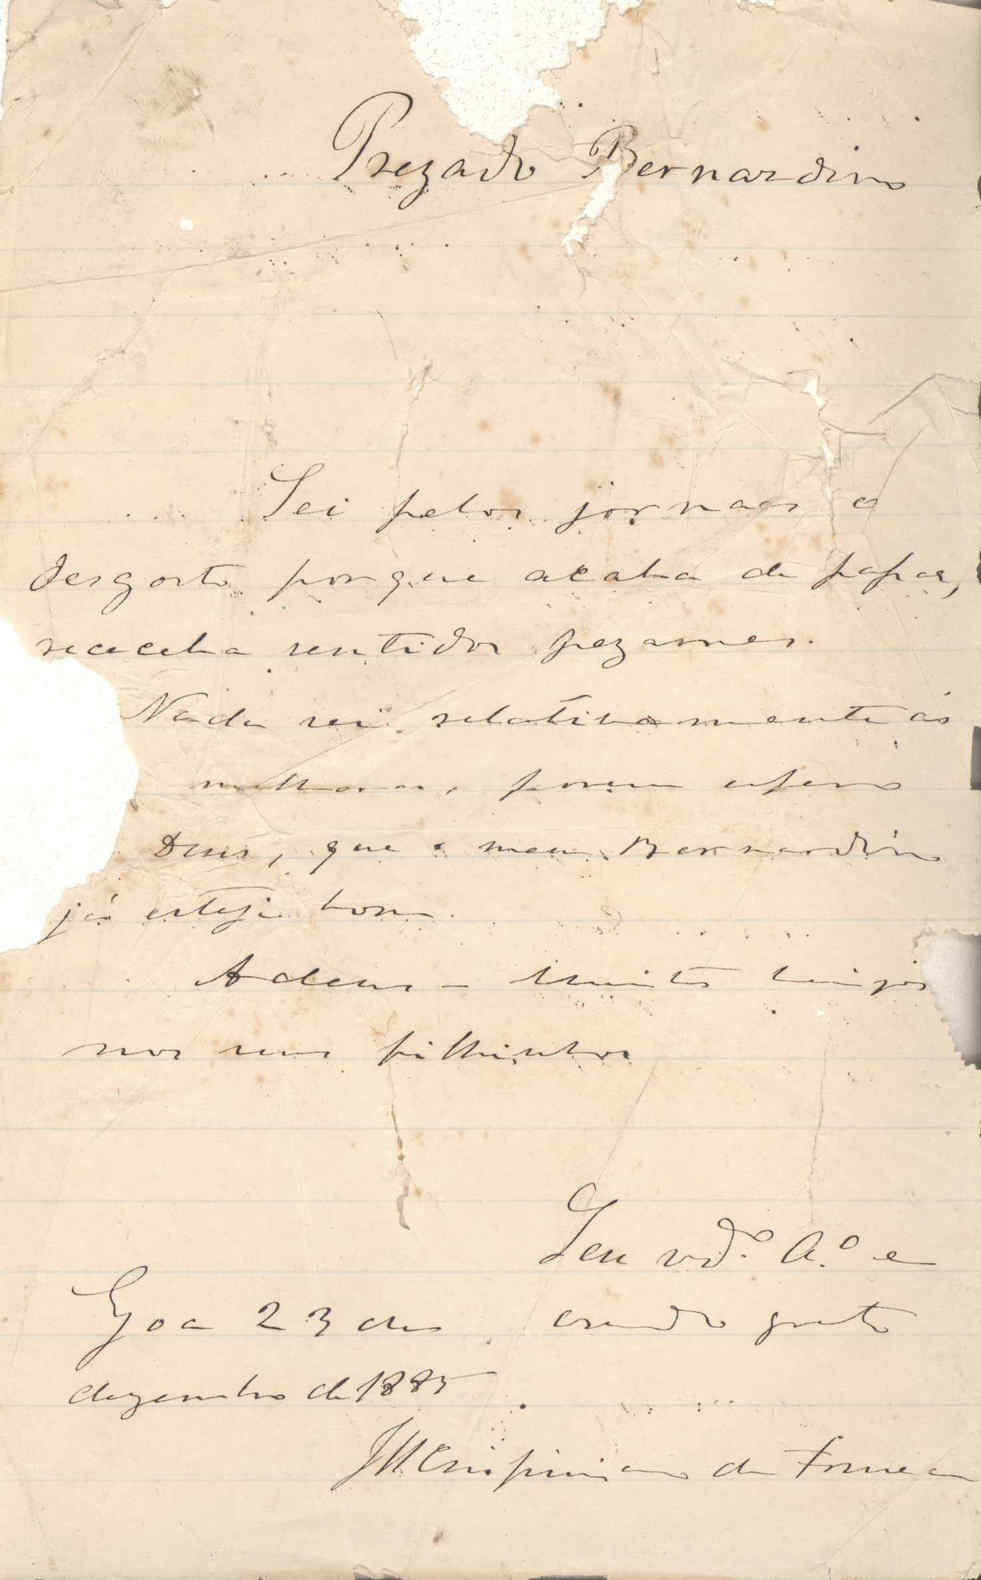 Prezado Bernardino
Sei pelos jornaes o
desgosto porque acaba de passar,
receceba sentidos pezames.
Nada sei relativamente ás
melhoras, porem espero
Deus, que o meu Bernardino
já esteja bom.
Adeus – Muitos beijos
nos seus filhinhos
Seu vd.º A.º e
creado grato
Goa 23 de
dezembro de 1885
JM Crispiniano da Fonseca